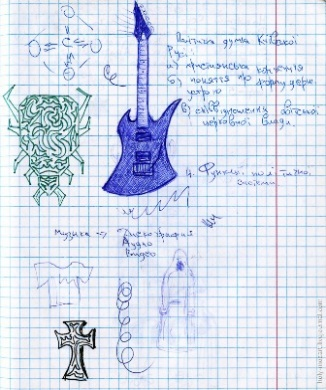 Політична думка Київської
Русі:
а) християнська концепція
б) поняття про форму держ.
устрою
в) співвідношення світської
церковної влади.
4. Функції політичної
системи
Музика → Дискография
Аудио
Видео
C
O
O